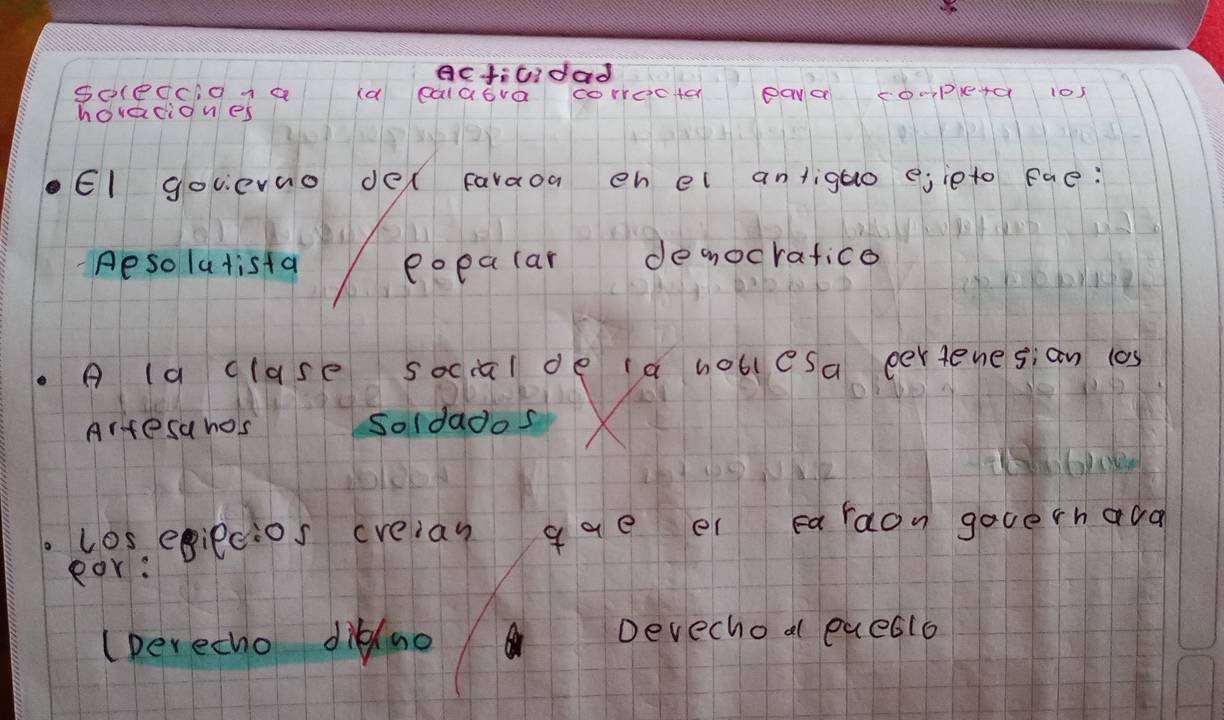 Actividad
Selecciona la palabra correcta para completa los
horaciones
• El govierno del faraon en el antiguo ejipto fue:
Apsolutista popular democratico
• A la clase social de la noblesa pertenesian los
Artesanos Soldados
• Los egipcios creian que el faraon governava
por:
Derecho divino Derecho al pueblo